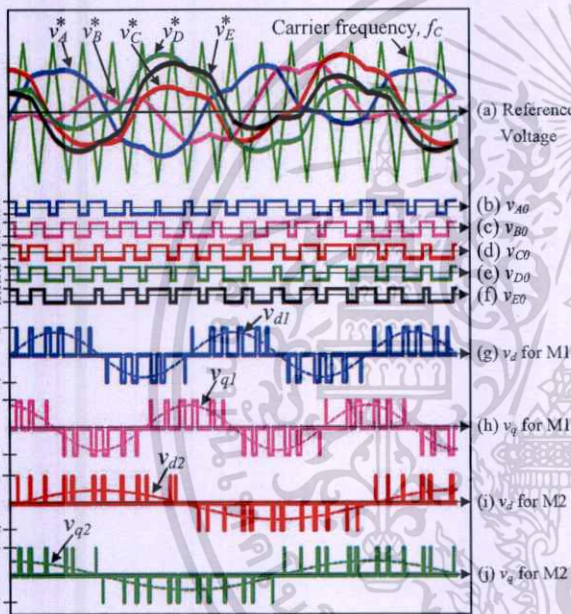 v*A v*B v*C v*D v*E Carrier frequency, fC
(a) Reference
Voltage
(b) vA0
(c) vB0
(d) vC0
(e) vD0
(f) vE0
vd1
(g) vd for M1
vq1
(h) vq for M1
vd2
(i) vd for M2
vq2
(j) vq for M2